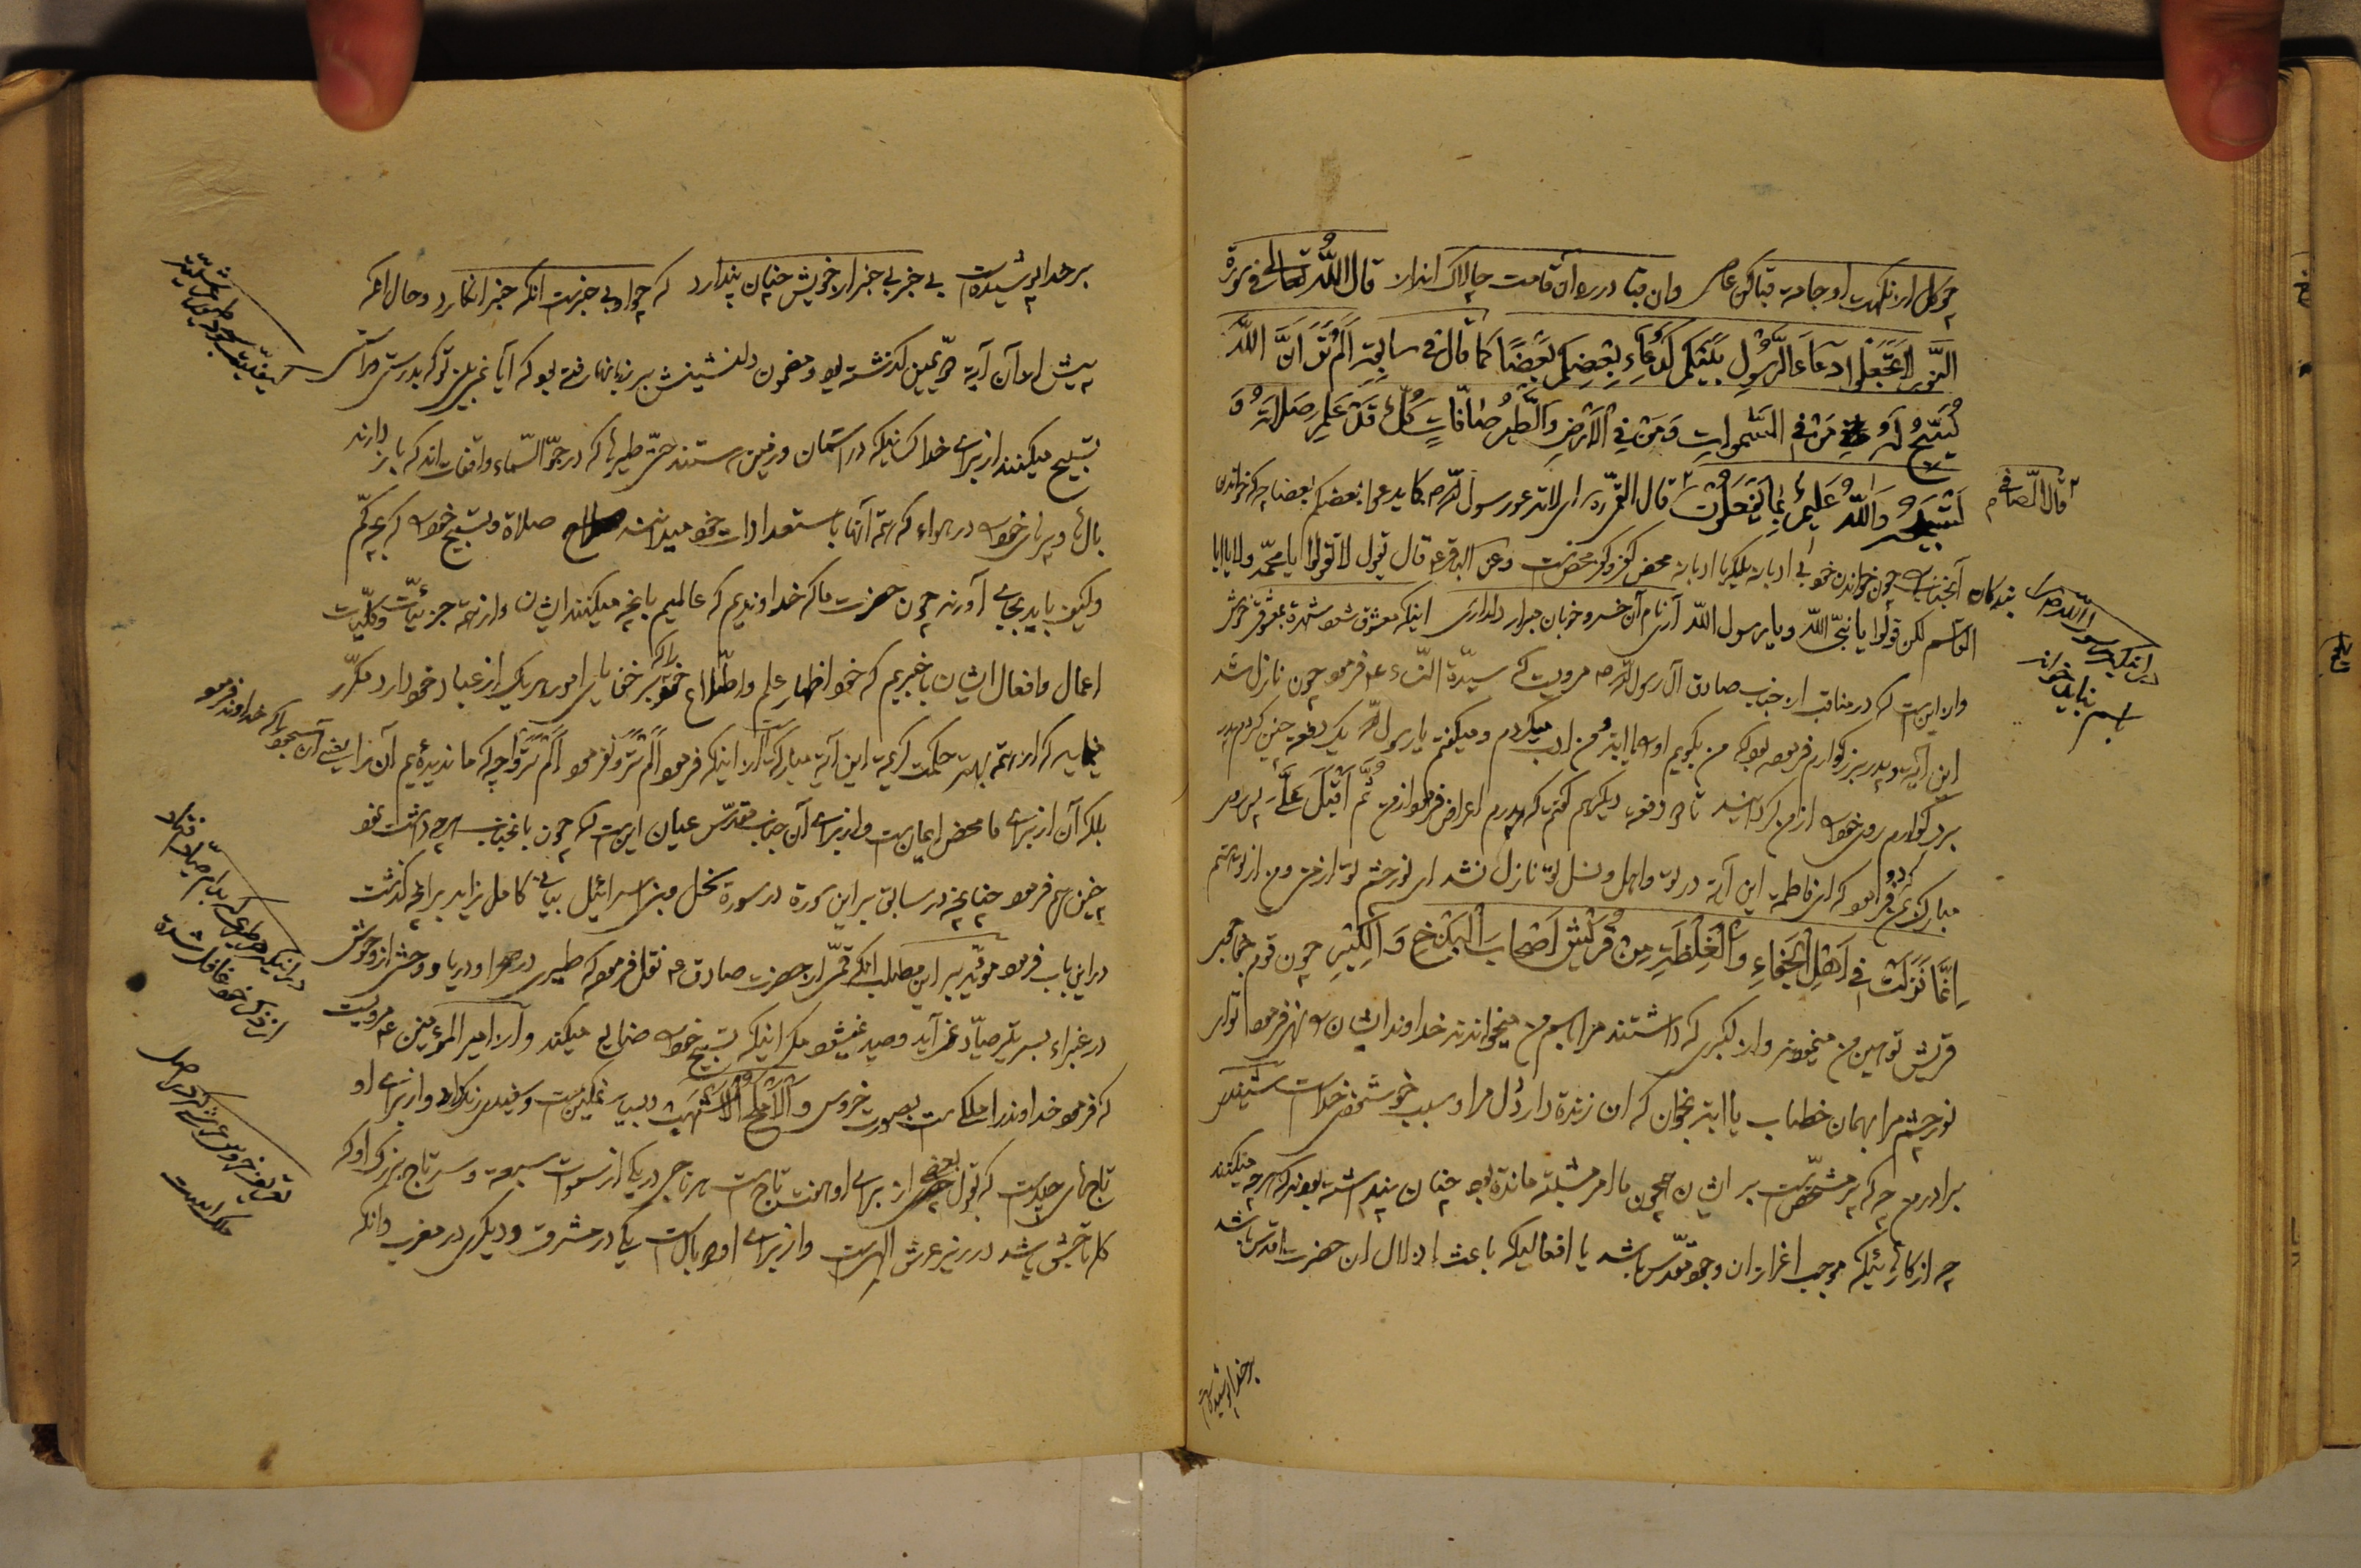 چو کل از نکهت او جامه قبا کن حاصل وان قبا در ره آن قامت چالاک انداز قال اللّه تعالی فی سورة
النّور لا تجعلوا دعآءَ الرّسول بینکم کدعآء بعضکم بعضًا کما قال فی سابقه اَلَم تَرَ اَنَّ اللّه
یُسَبِّحُ لَهُ مَن فی السَّمواتِ وَمَن فی الاَرضِ وَالطَّیرُ صافّاتٍ کُلٌّ قَد عَلِمَ صَلاتَهُ وَ
تَسبیحَهُ وَاللّه عَلیمٌ بِما یَفعَلُون قال القمّی ره ای لا تدعو رسول اللّه ص کما یدعوا بعضکم بعضا چه که خواندن
قال الصّافی م
بندگان آنجناب چون خواندن خود بی ادبانه بلکه با ادبانه محض کفر و کفر محض است وعن الباقر ع قال یقول لا تقولوا یا محمّد ولا یا ابا
القاسم لکن قولوا یا نبیّ اللّه و یا رسول اللّه آری نام آن خسرو خوبان مبر از دلداری اینکه معشوق شود شهره بمعشوقی خوش
در اینکه رسول اللّه را باسم نباید خواند
وان این است که در مناقب از جناب صادق آل رسول اللّه ص مرویست که سیّدة النّساء ع فرمود چون نازل شد
این آیه و پدر بزرگوارم فرموده بود که من بگویم او را یا ابة من ادب میکردم و میگفتم یا رسول اللّه یک دفعه چنین کردم پدر
بزرگوارم روی خود را از من گردانید تا دو دفعه دیگر هم گفتم که پدرم اعراض فرمود از من ثُمَّ اَقبَلَ عَلَیَّ پس روی
مبارک بمن کرد و فرمود که ای فاطمه این آیه در تو و اهل و نسل تو نازل نشد ای نورچشم تو از من و من از تو هستم
اِنَّما نَزَلَت فی اَهلِ الجَفاءِ وَالغِلظَةِ مِن قُرَیش اَصحابَ البَذخِ وَالکِبرِ چون قوم جفا گر
قریش توهین من میخواستند و از کبری که داشتند مرا باسم من میخواندند خداوند ایشان را نهی فرمود تو ای
نورچشم مرا بهمان خطاب یا ابة بخوان که ان زنده دار دل مرا و سبب خوشنودی خداست شنید
برادر من چه که بر مشخّص است بر ایشان چون ما امر مشتبه مانده بود چنان پنداشته بودند که هر چه میکنند
چه از کارهائیکه موجب اعزاز ان وجود مقدّس باشد یا افعالیکه باعث اذلال ان حضرت اقدس باشد
بر خدا پوشیده است
بر خدا پوشیده است بی خبر بی خبر از خویش چنان پندارد که چو او بی خبر است انکه خبر انگارد و حال انکه
پیش از آن آیه در یمین گذشته بود و مضمون دلنشینش بر زبانها رفته بود که آیا نمی بینی تو که بدرستی و راستی
تسبیح میکنند از برای خدا کسانیکه در آسمان و زمین هستند حتّی طیرها که در جوّ السّماء واقف‌اند که باز دارند
بالها و پرهای خود را در هواء که همه آنها باستعدادات خود میدانند صلاة و تسبیح خود را که بچه کم
و کیف باید بجای آورند چون حضرت ما که خداوندیم که عالمیم بانچه میکنند ایشان و از همه جزئیّات و کلّیّات
اعمال و افعال ایشان باخبریم که خود اظهار علم و اطّلاع خود را که بر خفایای امور هر یک از عباد خود دارد مکرّر
مینماید که از همه بهتر حکمت کریمه این آیه مبارکه است از اینکه فرمود اَلَم تَرَ و نفرمود اَلَم تَرَوا چه که ما ندیده‌ایم آن را یعنی آن تسبیحها را که خداوند فرمود
بلکه آن از برای ما محض ایمان است و از برای آن جناب مقدّس عیان این است که چون بانجناب هر چه داشت نمود
چنین هم فرمود چنانچه در سابق بر این سورة در سورة نحل و بنی اسرائیل بیانی کامل زاید بر آنچه گذشت
در این باب فرمود مؤیّد بر این مطلب انکه قمّی از حضرت صادق ع نقل فرموده که طیری در صحرا و دریا و وحشی از وحوش
در غبراء بسر تیر صیّاد نمی آید و صید نمیشود مگر اینکه تسبیح خود را ضایع میکند و از امیر المؤمنین ع مرویست
که فرمود خداوند را ملکی است بصورت خروس والاَملَحُ الاَشهَب و بسیار نمکین است و سفید رنگ و از برای او
تاجهای چند است که بقول بعضی از برای او هفت تاج است هر تاجی در یکی از سموات سبعه و سر تاج بزرگ او که
کل تاجش باشد در زیر عرش الهی است و از برای او دو بال است یکی در مشرق و دیگری در مغرب وانکه
در اینکه هر طیری که بدام صیّاد افتد از ذکر خود غافل شده
تعریف خروس عرش که در اصل ملک است